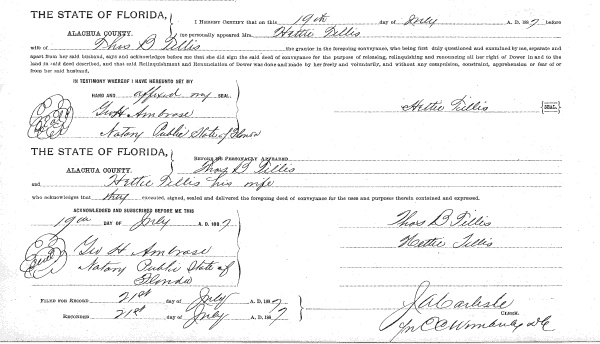 THE STATE OF FLORIDA,
ALACHUA COUNTY.
I HEREBY CERTIFY that on this 19th day of July A. D. 1887 before
me personally appeared Mrs. Hettie Tillis
wife of Thos B Tillis the grantor in the foregoing conveyance, who being first duly questioned and examined by me, separate and
apart from her said husband, says and acknowledges before me that she did sign the said deed of conveyance for the purpose of releasing, relinquishing and renouncing all her right of Dower in and to the
land in said deed described, and that said Relinquishment and Renunciation of Dower was done and made by her freely and voluntarily, and without any compulsion, constraint, apprehension or fear of or
from her said husband.
IN TESTIMONY WHEREOF I HAVE HEREUNTO SET MY
HAND AND affixed my SEAL.
Geo H Ambrose
Notary Public State of Florida
Hettie Tillis SEAL.
THE STATE OF FLORIDA,
ALACHUA COUNTY.
BEFORE ME PERSONALLY APPEARED
Thos B Tillis
and Hettie Tillis his wife
who acknowledges that they executed, signed, sealed and delivered the foregoing deed of conveyance for the uses and purposes therein contained and expressed.
ACKNOWLEDGED AND SUBSCRIBED BEFORE ME THIS
19th DAY OF July A. D. 1887
Geo H Ambrose
Notary Public State of
Florida
Seal
Thos B Tillis
Hettie Tillis
FILED FOR RECORD 21st day of July A. D. 1887
RECORDED 21st day of July A. D. 1887
J A Carlisle
CLERK.